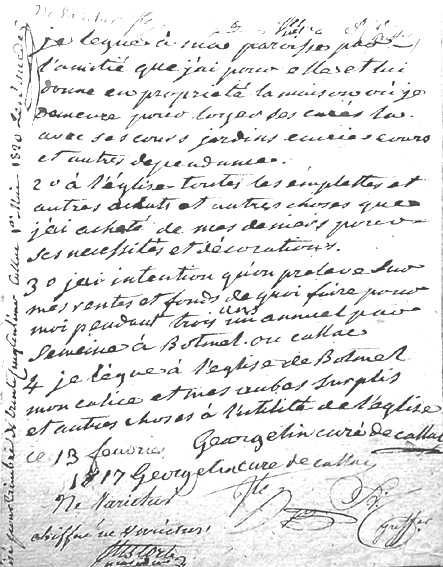 Ne Varietur
je legue à ma paroisse par
l'amitié que j'ai pour elle et lui
donne en propriété la maison où je
demeure pour loger ses curés
avec ses cours jardins ecuries cours
et autres dependance.
20 à l'église toutes les emplettes et
autres achats et autres choses que
j'ai acheté de mes deniers pour
ses necessités et décorations.
30 j'ai intention qu'on preleve sur
mes rentes et fonds de quoi faire pour
moi pendant trois ans un annuel par
semeine à Botmel ou callac
4 je legue à l'eglise de Botmel
mon calice et mes aubes surplis
et autres choses à l'utilité de l'eglise
Georgelin curé de callac
ce 13 fevrier
1817 Georgelin cure de callac
Ne Varietur
chiffré ne Varietur
Greffier